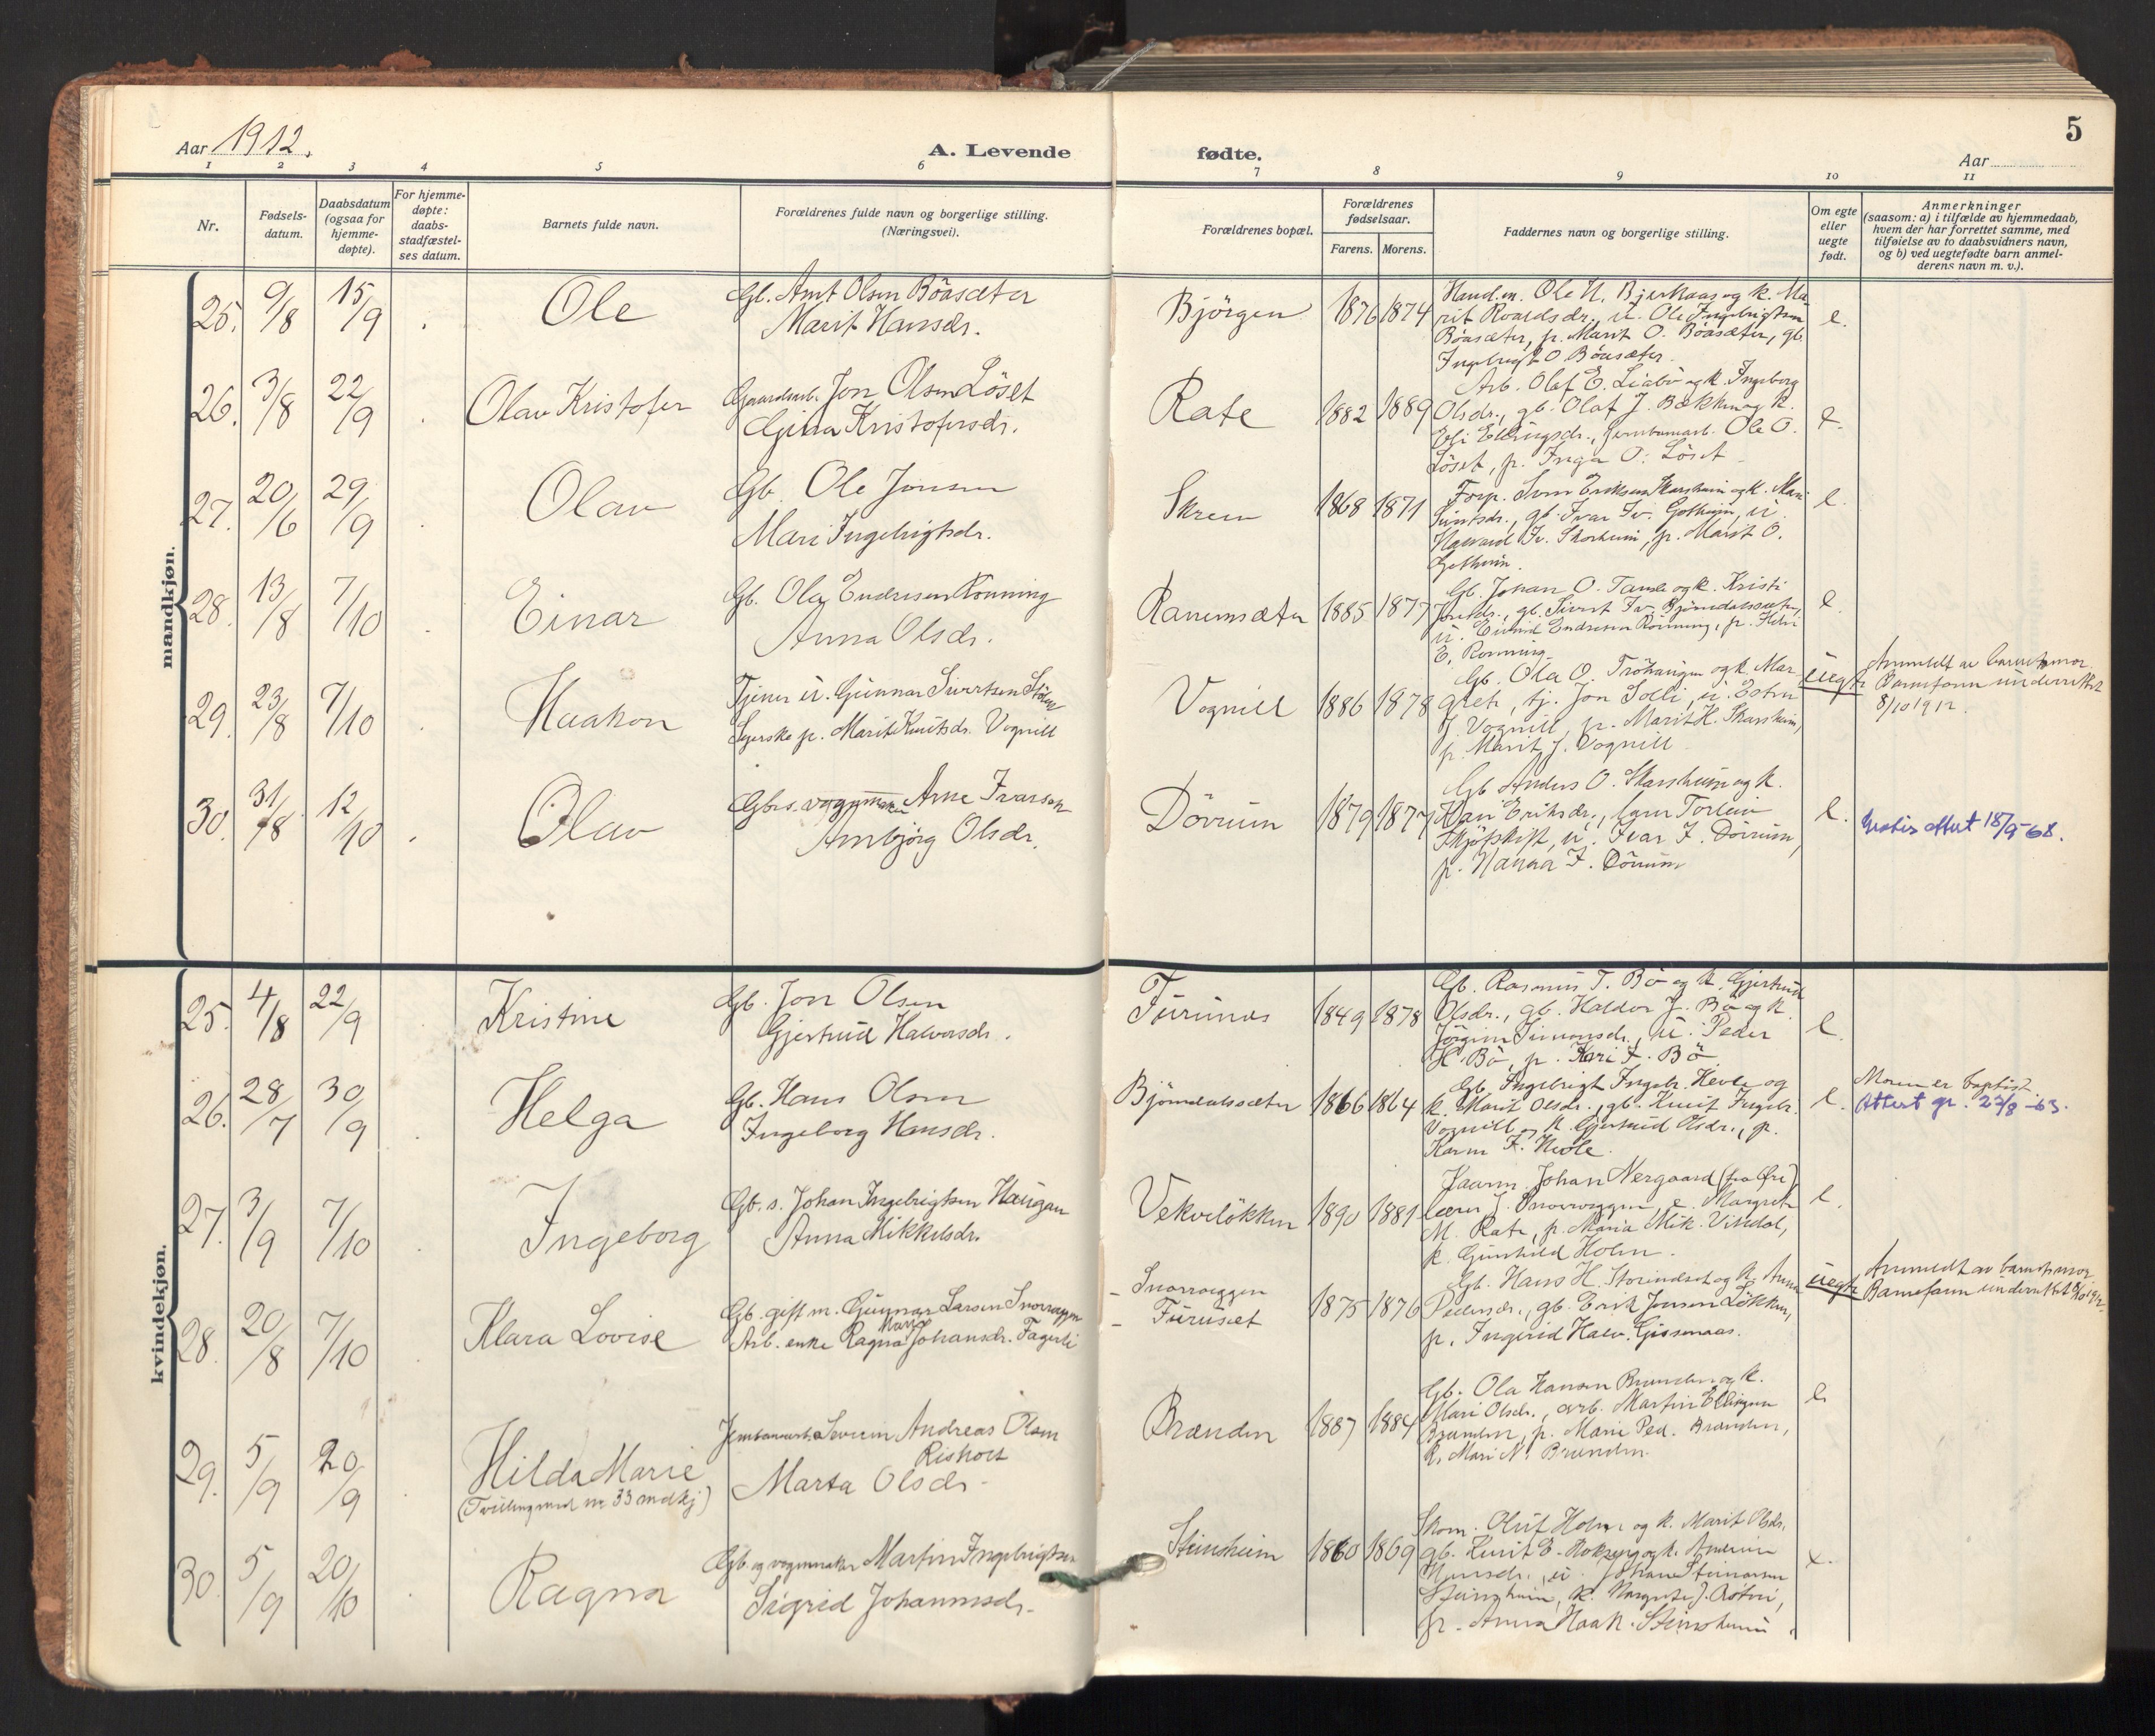 5
Aar 1912.
A. Levende
fødte.
Aar
1 2 3 4 5 6 7 8 9 10 11
Nr.
Fødsels-
datum.
Daabsdatum
(ogsaa for
hjemme-
døpte).
For hjemme-
døpte:
daabs-
stadfæstel-
ses datum.
Barnets fulde navn.
Forældrenes fulde navn og borgerlige stilling.
(Næringsvei).
Forældrenes bopæl.
Forældrenes
fødselsaar.
Farens. Morens.
Faddernes navn og borgerlige stilling.
Om egte
eller
uegte
født.
Anmerkninger
(saasom: a) i tilfælde av hjemmedaab,
hvem der har forrettet samme, med
tilføielse av to daabsvidners navn,
og b) ved uegtefødte barn anmel-
derens navn m. v.).
mandkjøn.
25. 9/8 15/9 Ole
Gb. Arnt Olsen Böasæter
Marit Hansdr.
Björgen 1876 1874
Ole Ingebrigtsen
Böasæter, p. Marit O. Böasæter, gb.
Ingebrigt O Böasæter.
e.
26. 3/8 22/9 Olav Kristofer
Gaardarb. Jon Olsen Löset
Gjina Kristofersdr.
Rate 1882 1889
Arb. Olaf E. Liabö og k. Ingeborg
Olsdr., gb. Olaf J. Bækken og k.
Eli Ellingsdr., Ole O.
Löset, p. Inga O. Löset
e.
27. 20/6 29/9 Olav
Gb. Ole Jonsen
Mari Ingebrigtsdr.
Skrem 1868 1871
Eriksen Skarsheim og k. Mari
Sivertsdr., gb. Ivar Iv. Gotheim, u.
Iv. Skarsheim, p. Marit O.
Gotheim.
e.
28. 13/8 7/10 Einar
Gb. Ola Endresen Rönning
Anna Olsdr.
Ranemsæter 1885 1877
Gb. Johan O. og k. Kristi
Jonsdr., gb. Sivert Iv. Björndalssæter,
u. Eivind Endresen Rönning, p.
E. Rönning.
e.
29. 23/8 7/10 Haakon
Tjener u. Gunnar Sivertsen Stölen
Syerske p. Marit Knutsdr. Vognill
Vognill 1886 1878
Gb. Ola O. Tröhaugen og k. Mar-
greth, tj. Jon Solli, u.
J. Vognill, p. Marit K. Skarsheim,
p. Marit J. Vognill
uegte
Anmeldt av barnets mor.
Barnefaren underrettet
8/10 1912.
30. 31/8 12/10 Olav
Gbrs. vognmaker Arne Ivarsen
Ambjörg Olsdr.
Dörum 1879 1877
Gb Anders O. Skarsheim og k.
Kari Eriksdr., Torleiv
u. Ivar I. Dörum,
p. Hanna I. Dörum
e.
Gratis attest 18/9-68.
kvindekjøn.
25. 4/8 22/9 Kristine
Gb. Jon Olsen
Gjertrud Halvorsdr.
Furunes 1849 1878
Gb. Rasmus T. Bö og k. Gjertrud
Olsdr., gb. Haldor J. Bö og k.
Jörgine Simonsdr., u. Peder
H. Bö, p. Kari J. Bö
e.
26. 28/7 30/9 Helga
Gb. Hans Olsen
Ingeborg Hansdr.
Björndalssæter 1866 1864
Gb. Ingebrigt Ingebr. Hevle og
k. Marit Olsdr., gb. Knut Ingebr.
Vognill og k. Gjertrud Olsdr., p.
Karen I. Hevle.
e.
Moren er baptist
Attest gr. 27/8-63.
27. 3/9 7/10 Ingeborg
Gb. s. Johan Ingebrigtsen Haugen
Anna Mikkelsdr.
Vekvelökken 1890 1881
Johan Nergaard (fra Öre),
lærer J. Snoreeggen, e. Margrete
M. Rate, p. Maria Mik. Vindal,
k. Gunhild Holm.
e.
28. 20/8 7/10 Klara Lovise
Gb. gift m. Gunnar Larsen Snoreeggen
Arb. enke Ragna Marie Johansdr. Fagerli
- Snoreeggen
- Furuset
1875 1876
Gb. Hans H. Storindset og k. Anna
Pedersdr., gb. Erik Jonsen Lökken,
p. Ingerid Halv. Gissenaas.
uegte
Anmeldt av barnets mor
Barnefaren underrettet 8/10 1912.
29. 5/9 20/9 Hilda Marie
(Tvilling med nr 33 mdkj)
Jernbanearb. Severin Andreas Olsen
Riskott
Marta Olsdr.
Brænden 1887 1884
Gb. Ola Hansen Brænden og k.
Mari Olsdr., arb. Martin Ellingsen
Brænden, p. Marie Ped. Brænden,
k. Mari N. Brænden.
e.
30. 5/9 20/10 Ragna
Gb og vognmaker Martin Ingebrigtsen
Sigrid Johannesdr.
Steinsheim 1860 1869
Skom. Oluf Holm og k. Marit Olsdr.
gb. Knut E. og k.
u. Johan
Steinsheim, k. Margrete J.
p. Anna Haak. Steinsheim